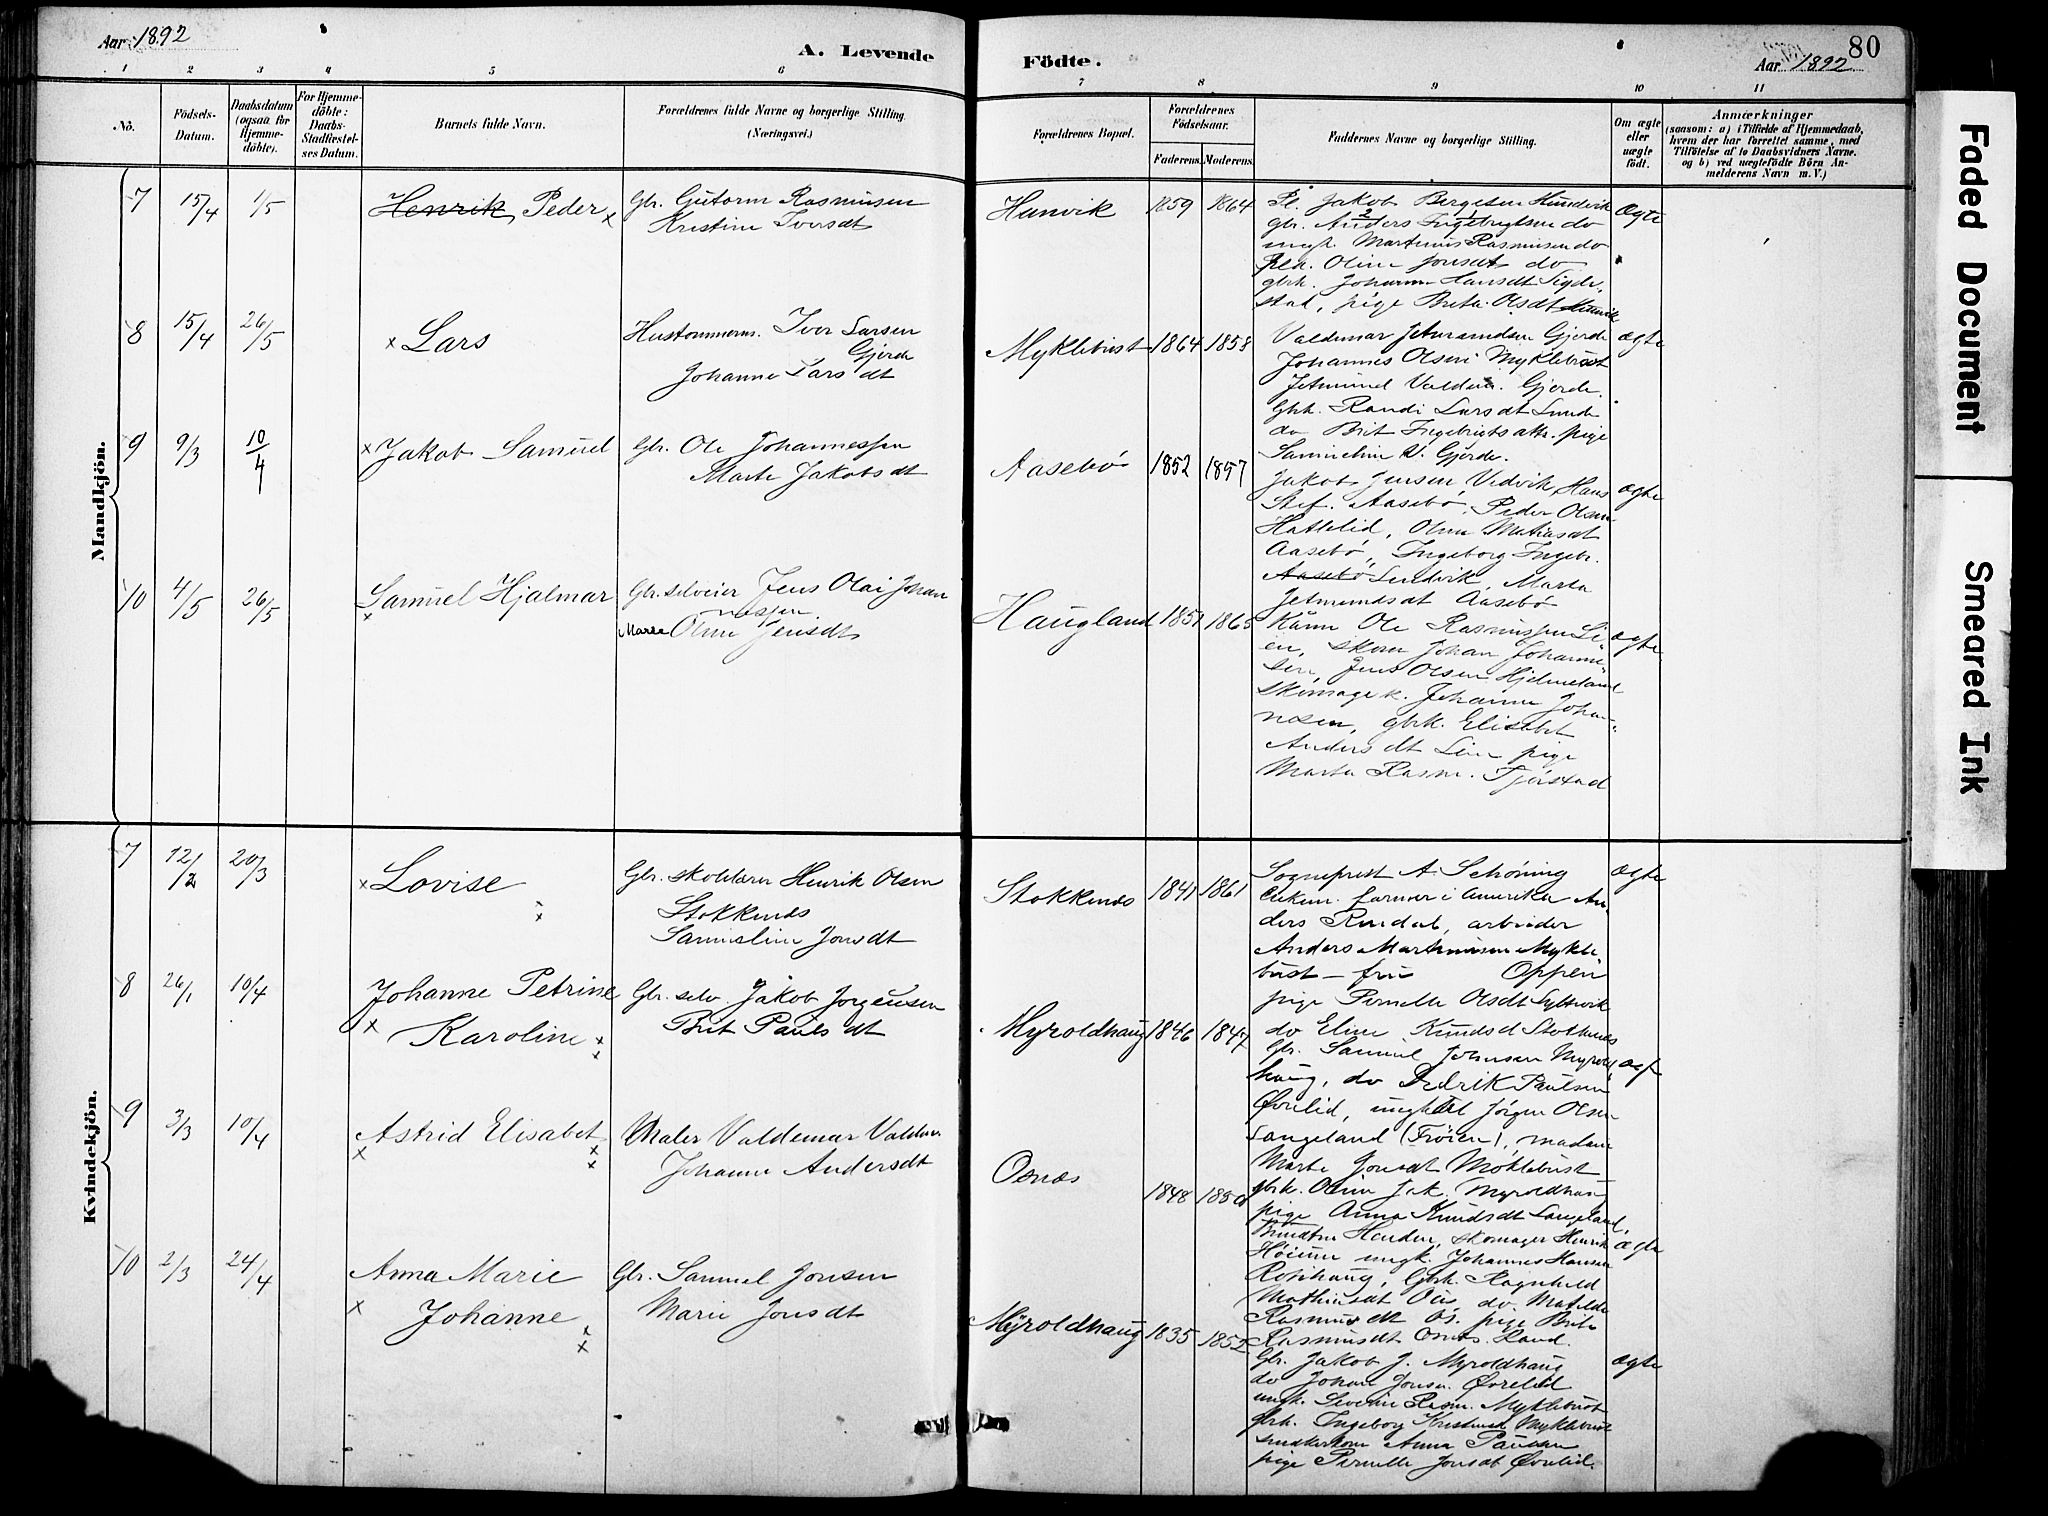 Aar 1892
A. Levende Födte.
80
Aar 1892
1 2 3 4 5 6 7 8 9 10 11
No.
Födsels-
Datum.
Daabsdatum
(ogsaa for
Hjemme-
döbte).
For Hjemme-
döbte:
Daabs-
Stadfæstel-
ses Datum.
Barnets fulde Navn.
Forældrenes fulde Navne og borgerlige Stilling.
(Næringsvei.)
Forældrenes Bopæl.
Forældrenes
Födselsaar.
Faderens. Moderens.
Faddernes Navne og borgerlige Stilling.
Om ægte
eller
uægte
födt.
Anmærkninger
(saasom: a) i Tilfælde af Hjemmedaab,
hvem der har forrettet samme, med
Tilföielse af to Daabsvidners Navne.
og b) ved uægtefödte Börn An-
melderens Navn m. V.)
Mandkjön.
7 15/4 1/5 Henrik, Peder x
Gbr. Guttorm Rasmusen
Kristine Iversdt
Hunvik 1859 1864
Pl. Jakob Bergesen Hundvik
gbr. Anders Ingebrigtsen do
ungk. Martinus Rasmusen do
plk. Oline Jonsdt do
gbrk. Johanne Hansdt Sigde-
stad, pige Brita Olsdt Hunvik
Ægte
8 15/4 26/5 x Lars
Hustommerm. Iver Larsen
Gjerde
Johanne Larsdt
Myklebust 1864 1858
Valdemar Jetmundsen Gjerde
Johannes Olsen Myklebust
Jetmund Valdem. Gjerde.
Gbrk. Randi Larsdt Lunde
do Brit Ingebrigtsdtr. pige
Samueline V. Gjerde.
ægte
9 9/3 10/4 x Jakob Samuel
Gbr. Ole Johannessen
Marte Jakobsdt
Aasebö 1852 1857
Jakob Jensen Vedvik, Hans
Stef. Aasebö, Peder Olsen
Hattelid, Oline Mathiasdt
Aasebö, Ingeborg Ingebr.
Aasebö Sendvik, Marta
Jetmundsdt Aasebö
ægte
10 4/5 26/5 Samuel Hjalmar
x
Gbr. selveier Jens Olai Johan
nessen
Marte Oline Jensdt
Haugland 1851 1865
Kaarm. Ole Rasmussen Li-
en, skom. Johan Johanne-
sen, Jens Olsen Hjelmeland
skomagerk. Johanne Johan-
nesen, gbrk. Elisabet
Andersdt Lien pige
Marta Rasm. Tjörstad
ægte
Kvindekjön.
7 12/2 20/3 x Lovise
x
Gbr. skolelærer Henrik Olsen
Stokkenæs
Samueline Jonsdt
Stokkenæs 1841 1861
Sogneprest A. Schöning
Cirkem. farmer i Amerika An-
ders Rindal, arbeider
Anders Martinusen Mykle-
bust - fru Oppen
pige Pernelle Olsdt Syltevik
do Eline Knudsd Stokkenes
ægte
8 26/1 10/4 Johanne Petrine
x Karoline x
x
Gbr. selv. Jakob Jorgensen
Brit Paulsdt
Myroldhaug 1846 1847
Gbr. Samuel Johnsen Myrold
haug, do Didrik Paulsen
Øvrelid, ungkel Jörgen Olsen
Langeland (Fröien), madam
Marte Jonsdt Möklebust
gbrk. Oline Jak. Myroldhaug
pige Anna Knudsdt Langeland,
ægt
9 3/3 10/4 Astrid Elisabet
x x
x
Maler Valdemar Valdem.
Johanne Andersdt
Osnæs 1848 1850
Henden, skomager Henrik
Höiem ungk. Johannes Hansen
Rotihaug, Gbrk. Ragnhild
Mathiasdt Os, do. Matilde
Rasmusdt Os. pige Brite
Rasmusdt Osnæs. Hand.
ægte
10 2/3 24/4 Anna Marie
x Johanne x
x
Gbr. Samuel Jonsen
Marie Jonsdt
Myroldhaug 1835 1852
Gbr. Jakob J. Myroldhaug
do Johan Jonsen Øvrelid
ungk. Severin Rasm. Myklebust
gbrk. Ingeborg Kristensd Myklebust
snedkerkone Anna Paulsen
pige Pernelle Jonsdt Øvrelid.
ægte
Faded Document
Smeared Ink